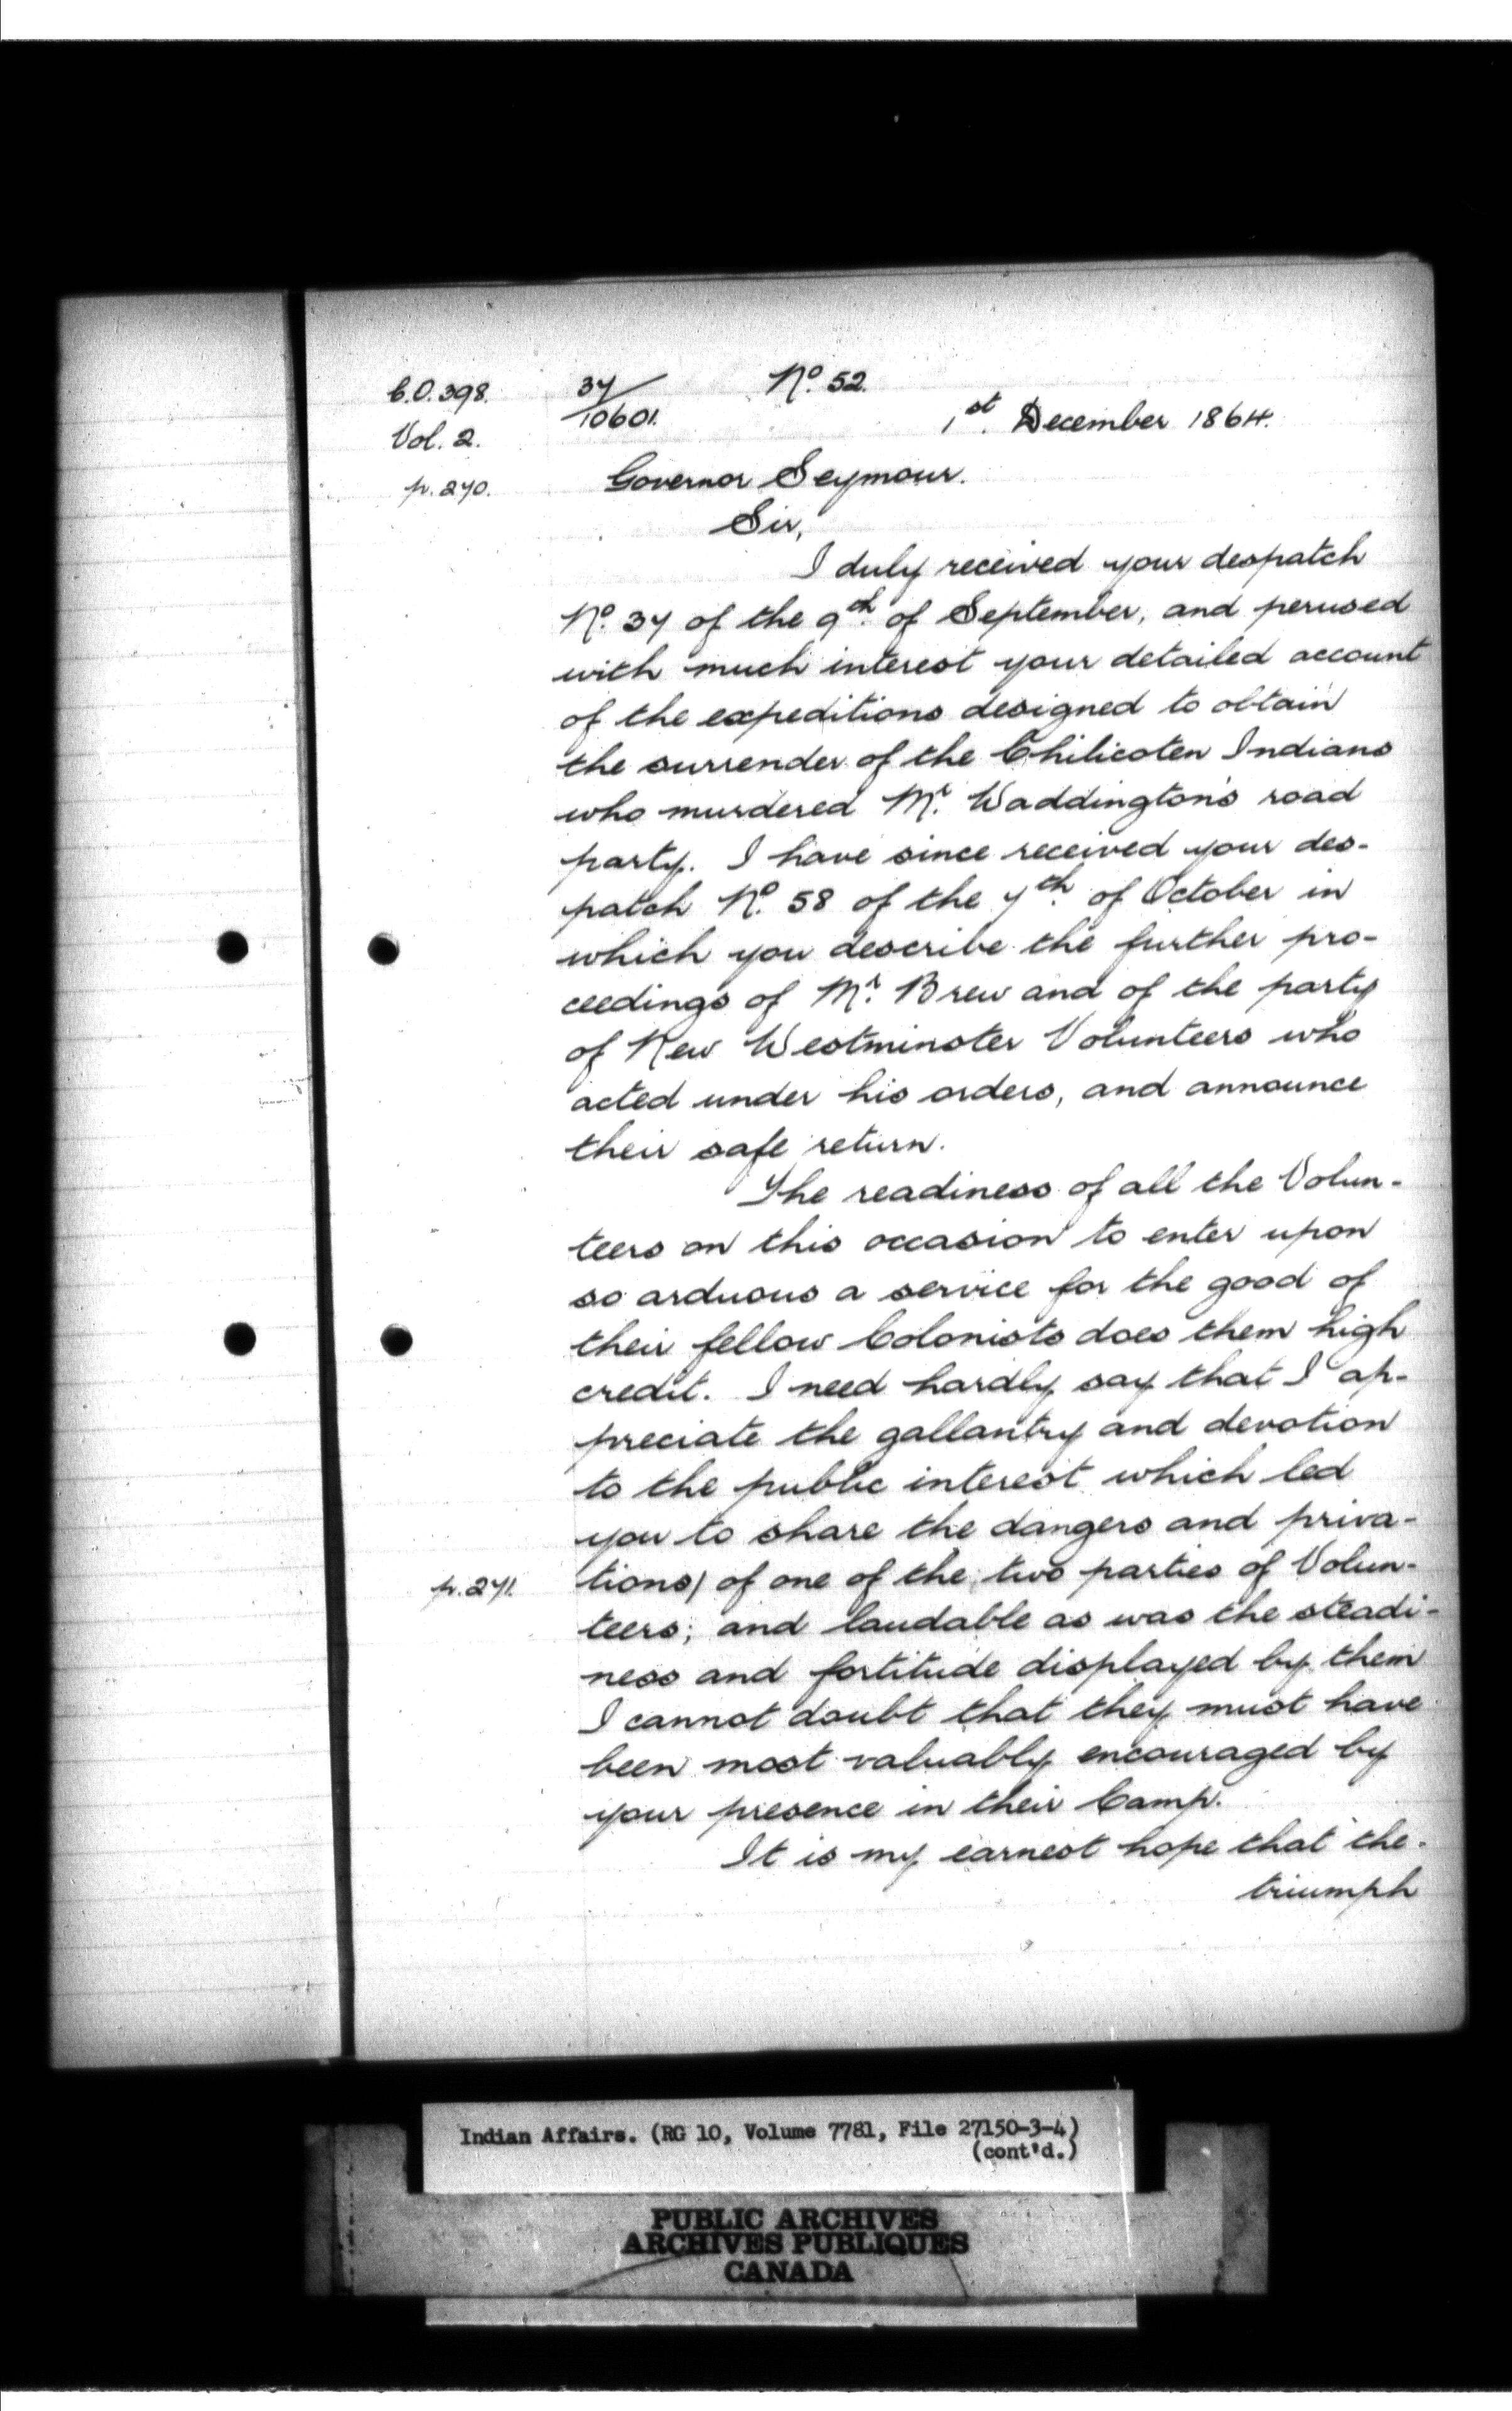 C.O. 398.
Vol. 2.
p. 270.
37/10601.
No. 52.
1st. December 1864.
Governor Seymour.
Sir,
I duly received your despatch
No. 37 of the 9th. of September, and perused
with much interest your detailed account
of the expeditions designed to obtain
the surrender of the Chilicoten Indians
who murdered Mr. Waddington's road
party. I have since received your des-
patch No. 58 of the 7th. of October in
which you describe the further pro-
ceedings of Mr. Brew and of the party
of New Westminster Volunteers who
acted under his orders, and announce
their safe return.
The readiness of all the Volun-
teers on this occasion to enter upon
so arduous a service for the good of
their fellow Colonists does them high
credit. I need hardly say that I ap-
preciate the gallantry and devotion
to the public interest which led
you to share the dangers and priva-
p. 271.
tions/ of one of the two parties of Volun-
teers; and laudable as was the steadi-
ness and fortitude displayed by them
I cannot doubt that they must have
been most valuably encouraged by
your presence in their Camp.
It is my earnest hope that the
triumph
Indian Affairs. (RG 10, Volume 7781, File 27150-3-4)
(cont'd.)
PUBLIC ARCHIVES
ARCHIVES PUBLIQUES
CANADA